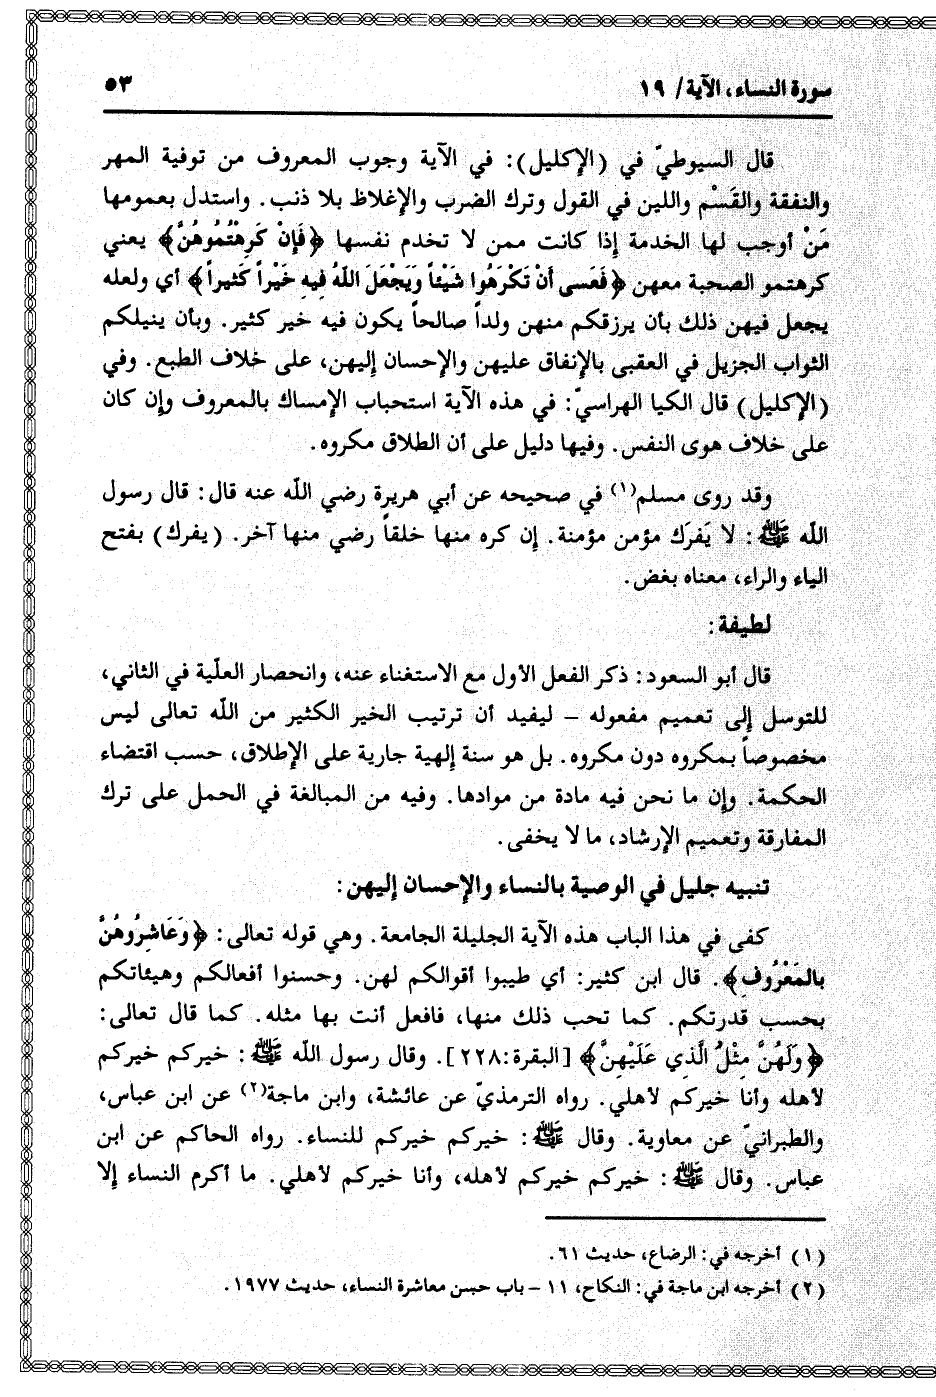 سورة النساء، الآية/ ١٩
٥٣
قال السيوطيّ في (الإكليل): في الآية وجوب المعروف من توفية المهر
والنفقة والقَسْم واللين في القول وترك الضرب والإغلاظ بلا ذنب. واستدل بعمومها
مَنْ أوجب لها الخدمة إذا كانت ممن لا تخدم نفسها ﴿فَإِنْ كَرِهْتُمُوهُنَّ﴾ يعني
كرهتمو الصحبة معهن ﴿فَعَسى أنْ تَكْرَهُوا شَيْئاً وَيَجْعَلَ اللّهُ فِيهِ خَيْراً كَثيراً﴾ أي ولعله
يجعل فيهن ذلك بأن يرزقكم منهن ولداً صالحاً يكون فيه خير كثير. وبأن ينيلكم
الثواب الجزيل في العقبى بالإنفاق عليهن والإحسان إليهن، على خلاف الطبع. وفي
(الإكليل) قال الكيا الهراسيّ: في هذه الآية استحباب الإمساك بالمعروف وإن كان
على خلاف هوى النفس. وفيها دليل على أن الطلاق مكروه.
وقد روى مسلم(١) في صحيحه عن أبي هريرة رضي اللّه عنه قال: قال رسول
اللّه ﷺ: لا يَفرَك مؤمن مؤمنة. إن كره منها خلقاً رضي منها آخر. (يفرك) بفتح
الياء والراء، معناه بغض.
لطيفة:
قال أبو السعود: ذكر الفعل الأول مع الاستغناء عنه، وانحصار العلّية في الثاني،
للتوسل إلى تعميم مفعوله – ليفيد أن ترتيب الخير الكثير من اللّه تعالى ليس
مخصوصاً بمكروه دون مكروه. بل هو سنة إلهية جارية على الإطلاق، حسب اقتضاء
الحكمة. وإن ما نحن فيه مادة من موادها. وفيه من المبالغة في الحمل على ترك
المفارقة وتعميم الإرشاد، ما لا يخفى.
تنبيه جليل في الوصية بالنساء والإحسان إليهن:
كفى في هذا الباب هذه الآية الجليلة الجامعة. وهي قوله تعالى: ﴿وَعَاشِرُوهُنَّ
بالمَعْرُوفِ﴾. قال ابن كثير: أي طيبوا أقوالكم لهن. وحسنوا أفعالكم وهيئاتكم
بحسب قدرتكم. كما تحب ذلك منها، فافعل أنت بها مثله. كما قال تعالى:
﴿وَلَهُنَّ مِثْلُ الَّذِي عَلَيْهِنَّ﴾ [البقرة:٢٢٨]. وقال رسول اللّه ﷺ: خيركم خيركم
لأهله وأنا خيركم لأهلي. رواه الترمذيّ عن عائشة، وابن ماجة(٢) عن ابن عباس،
والطبرانيّ عن معاوية. وقال ﷺ: خيركم خيركم للنساء. رواه الحاكم عن ابن
عباس. وقال ﷺ: خيركم خيركم لأهله، وأنا خيركم لأهلي. ما أكرم النساء إلا
(١) أخرجه في: الرضاع، حديث ٦١.
(٢) أخرجه ابن ماجة في: النكاح، ١١ – باب حسن معاشرة النساء، حديث ١٩٧٧.